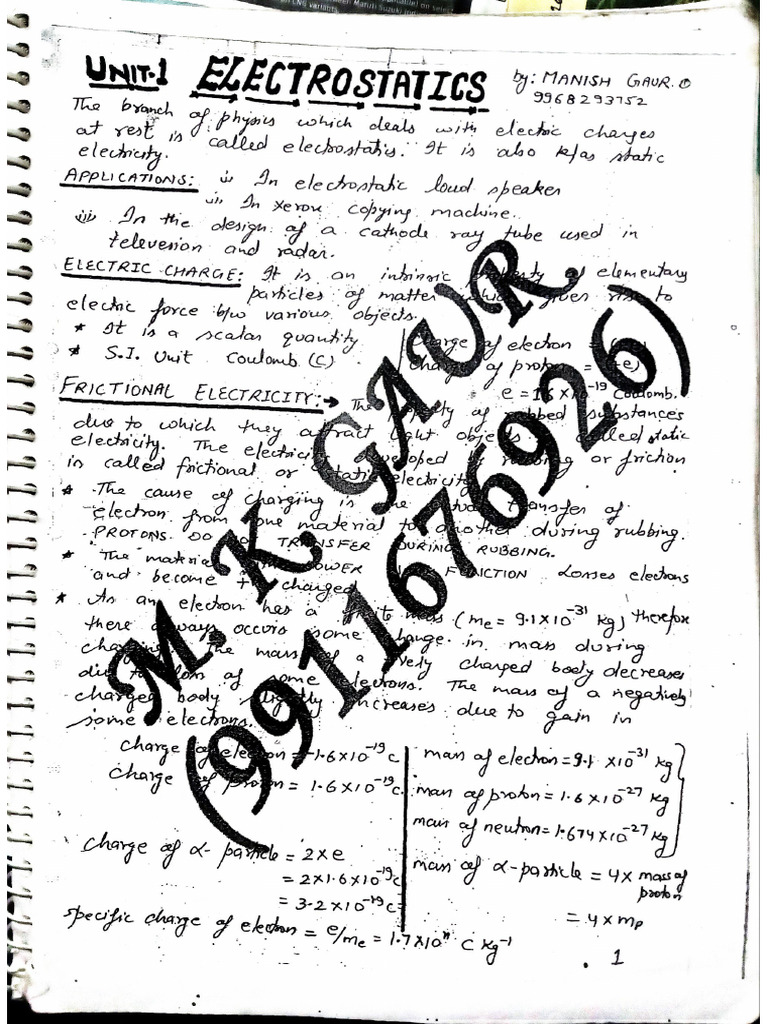 UNIT-1 ELECTROSTATICS by: MANISH GAUR.
9968293752
The branch of physics which deals with electric charges
at rest is called electrostatics. It is also k/as static
electricity.
APPLICATIONS: i) In electrostatic loud speaker
ii) In xerox copying machine.
iii) In the design of a cathode ray tube used in
television and radar.
ELECTRIC CHARGE: It is an intrinsic property of elementary
particles of matter which gives rise to
electric force b/w various objects.
* It is a scalar quantity
* S.I. Unit Coulomb (C)
Charge of electron =
Charge of proton = e)
e = 1.6 x 10⁻¹⁹ Coulomb.
FRICTIONAL ELECTRICITY:→ The property of rubbed substances
due to which they attract light objects called static
electricity. The electricity developed by rubbing or friction
is called frictional or static electricity
* The cause of charging is the actual transfer of
electron from one material to another during rubbing.
PROTONS DO NOT TRANSFER DURING RUBBING.
* The material LOWER FUNCTION Losses electrons
and become + charged
* As an electron has a finite mass (me = 9.1×10⁻³¹ kg) therefore
there always occurs some change in mass during
charging. The mass of a +vely charged body decreases
due to loss of some electrons. The mass of a negatively
charged body slightly increases due to gain in
some electrons.
charge of electron = -1.6×10⁻¹⁹ C
charge of proton = 1.6×10⁻¹⁹ C.
mass of electron = 9.1 ×10⁻³¹ kg
mass of proton = 1.6×10⁻²⁷ kg
mass of neutron = 1.674×10⁻²⁷ kg
charge of α- particle = 2×e
= 2×1.6×10⁻¹⁹ C
= 3.2×10⁻¹⁹ C
mass of α-particle = 4× mass of
proton
= 4×mp
specific charge of electron = e/me = 1.7×10¹¹ C kg⁻¹
1
M. K GAUR
(9911676926)